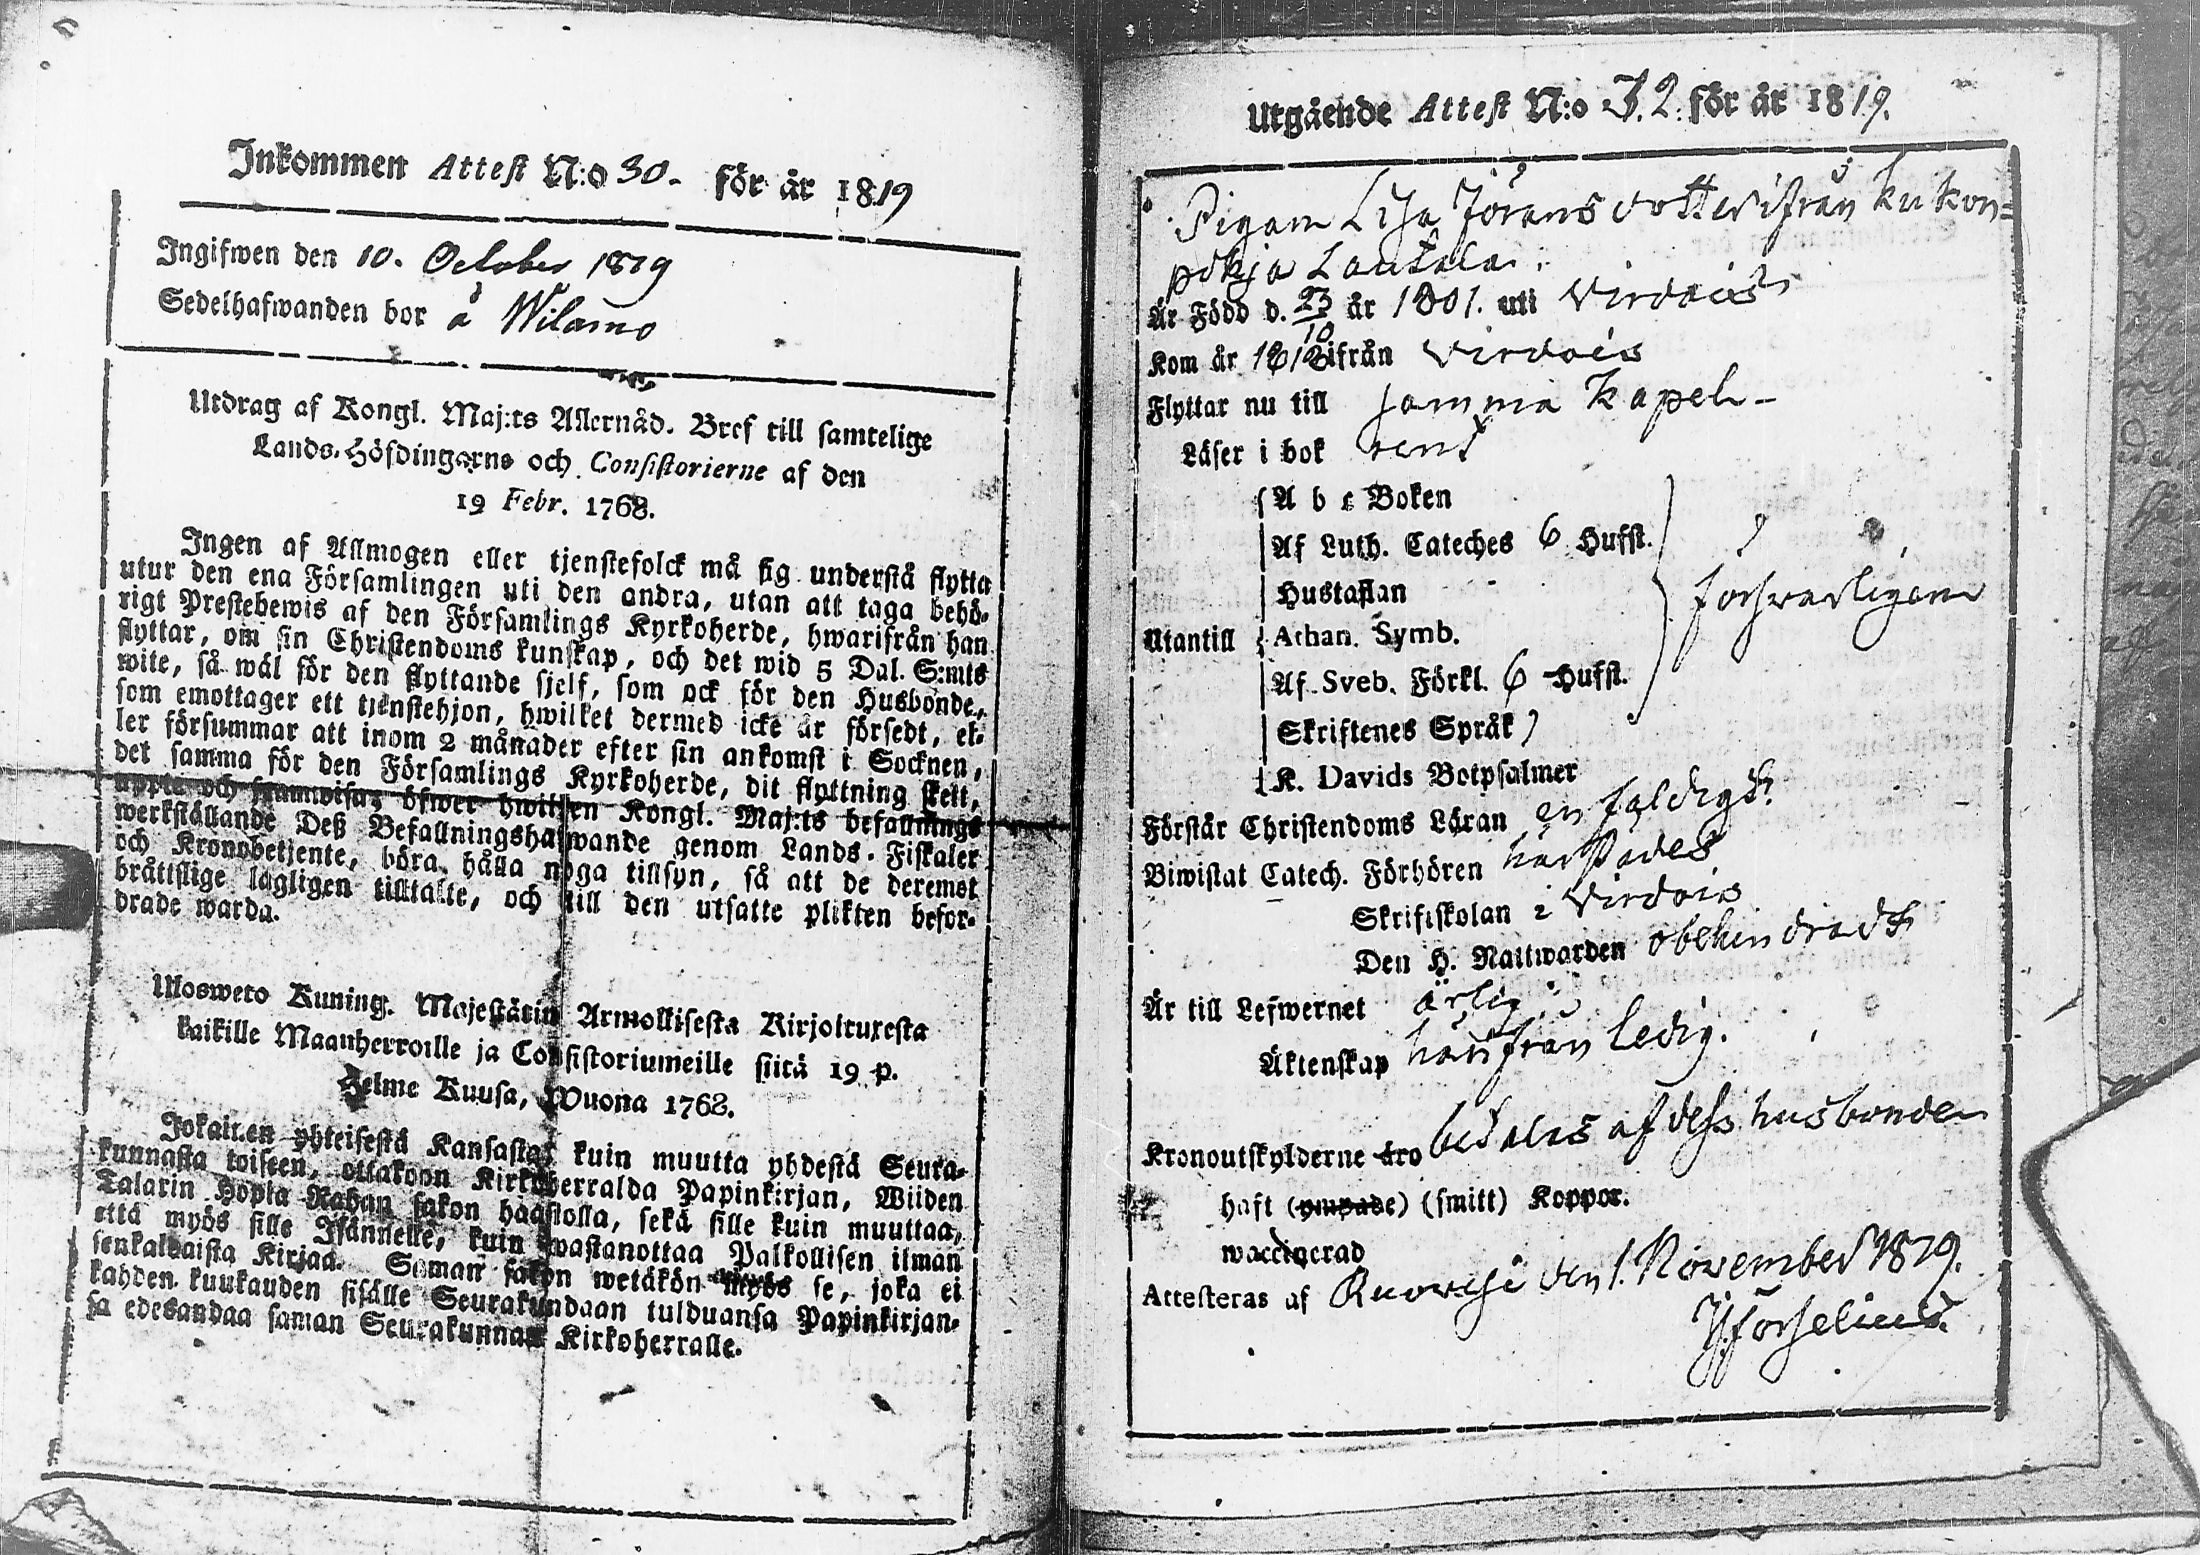 Inkommen Attest N:o 30. för år 1819
Ingifwen den 10. October 1819
Sedelhafwanden bor å Wilamo
Utdrag af Kongl. Maj:ts Allernåd. Bref till samtelige
Lands-Höfdingarne och Consistorierne af den
19 Febr. 1768.
Ingen af Allmogen eller tjenstefolck må sig understå flytta
utur den ena Församlingen uti den andra, utan att taga behö-
rigt Prestebewis af den Församlings Kyrkoherde, hwarifrån han
flyttar, om sin Christendoms kunskap, och det wid 5 Dal. S:mts
wite, så wäl för den flyttande sjelf, som ock för den Husbonde,
som emottager ett tjenstehjon, hwilket dermed icke är försedt, el-
ler försummar att inom 2 månader efter sin ankomst i Socknen,
det samma för den Församlings Kyrkoherde, dit flyttning skett,
uppte och framwisa; öfwer hwilken Kongl. Maj:ts befallnings
werkställande Deß Befallningshafwande genom Lands-Fiskaler
och Kronobetjente, böra hålla noga tillsyn, så att de deremot
bråttslige lagligen tilltalte, och till den utsatte plikten befor-
drade warda.
Ulosweto Kuning. Majestätin Armollisesta Kirjoituxesta
kaikille Maanherroille ja Consistoriumeille siitä 19 p.
Helme Kuusa, Wuona 1768.
Jokainen yhteisestä Kansasta, kuin muutta yhdestä Seura-
kunnasta toiseen, ottakoon Kirkoherralda Papinkirjan, Wiiden
Talarin Hopia Rahan sakon haastolla, sekä sille kuin muuttaa,
että myös sille Isännelle, kuin wastanottaa Palkollisen ilman
senkaldaista Kirjaa. Saman sakon wetäkön myös se, joka ei
kahden kuukauden sisälle Seurakundaan tulduansa Papinkirjan-
sa edesandaa saman Seurakunnan Kirkoherralle.
Utgående Attest N:o 32. för år 1819.
Pigan Lisa Jörans dotter ifrån Kukon=
pohja Lautala
Är Född d. 23/10 år 1801. uti Virdois
Kom år 1818 ifrån Virdois
Flyttar nu till samma Kapel-
Läser i bok rent
A b c Boken
Af Luth. Cateches 6 Hufst.
Hustaflan
Utantill Athan. Symb. försvarligen
Af Sveb. Förkl. 6 Hufst.
Skriftenes Språk
K. Davids Botpsalmer
Förstår Christendoms Läran enfaldigt
Biwistat Catech. Förhören härstädes
Skriftskolan i Virdois
Den H. Nattwarden obehindradt
Är till Lefwernet ärlig
Äktenskap härifrån ledig.
Kronoutskylderne äro betalas af dess husbonde
haft (ympade) (smitt) Koppor.
waccinerad
Attesteras af Ruovesi den 1. November 1819.
Forselius